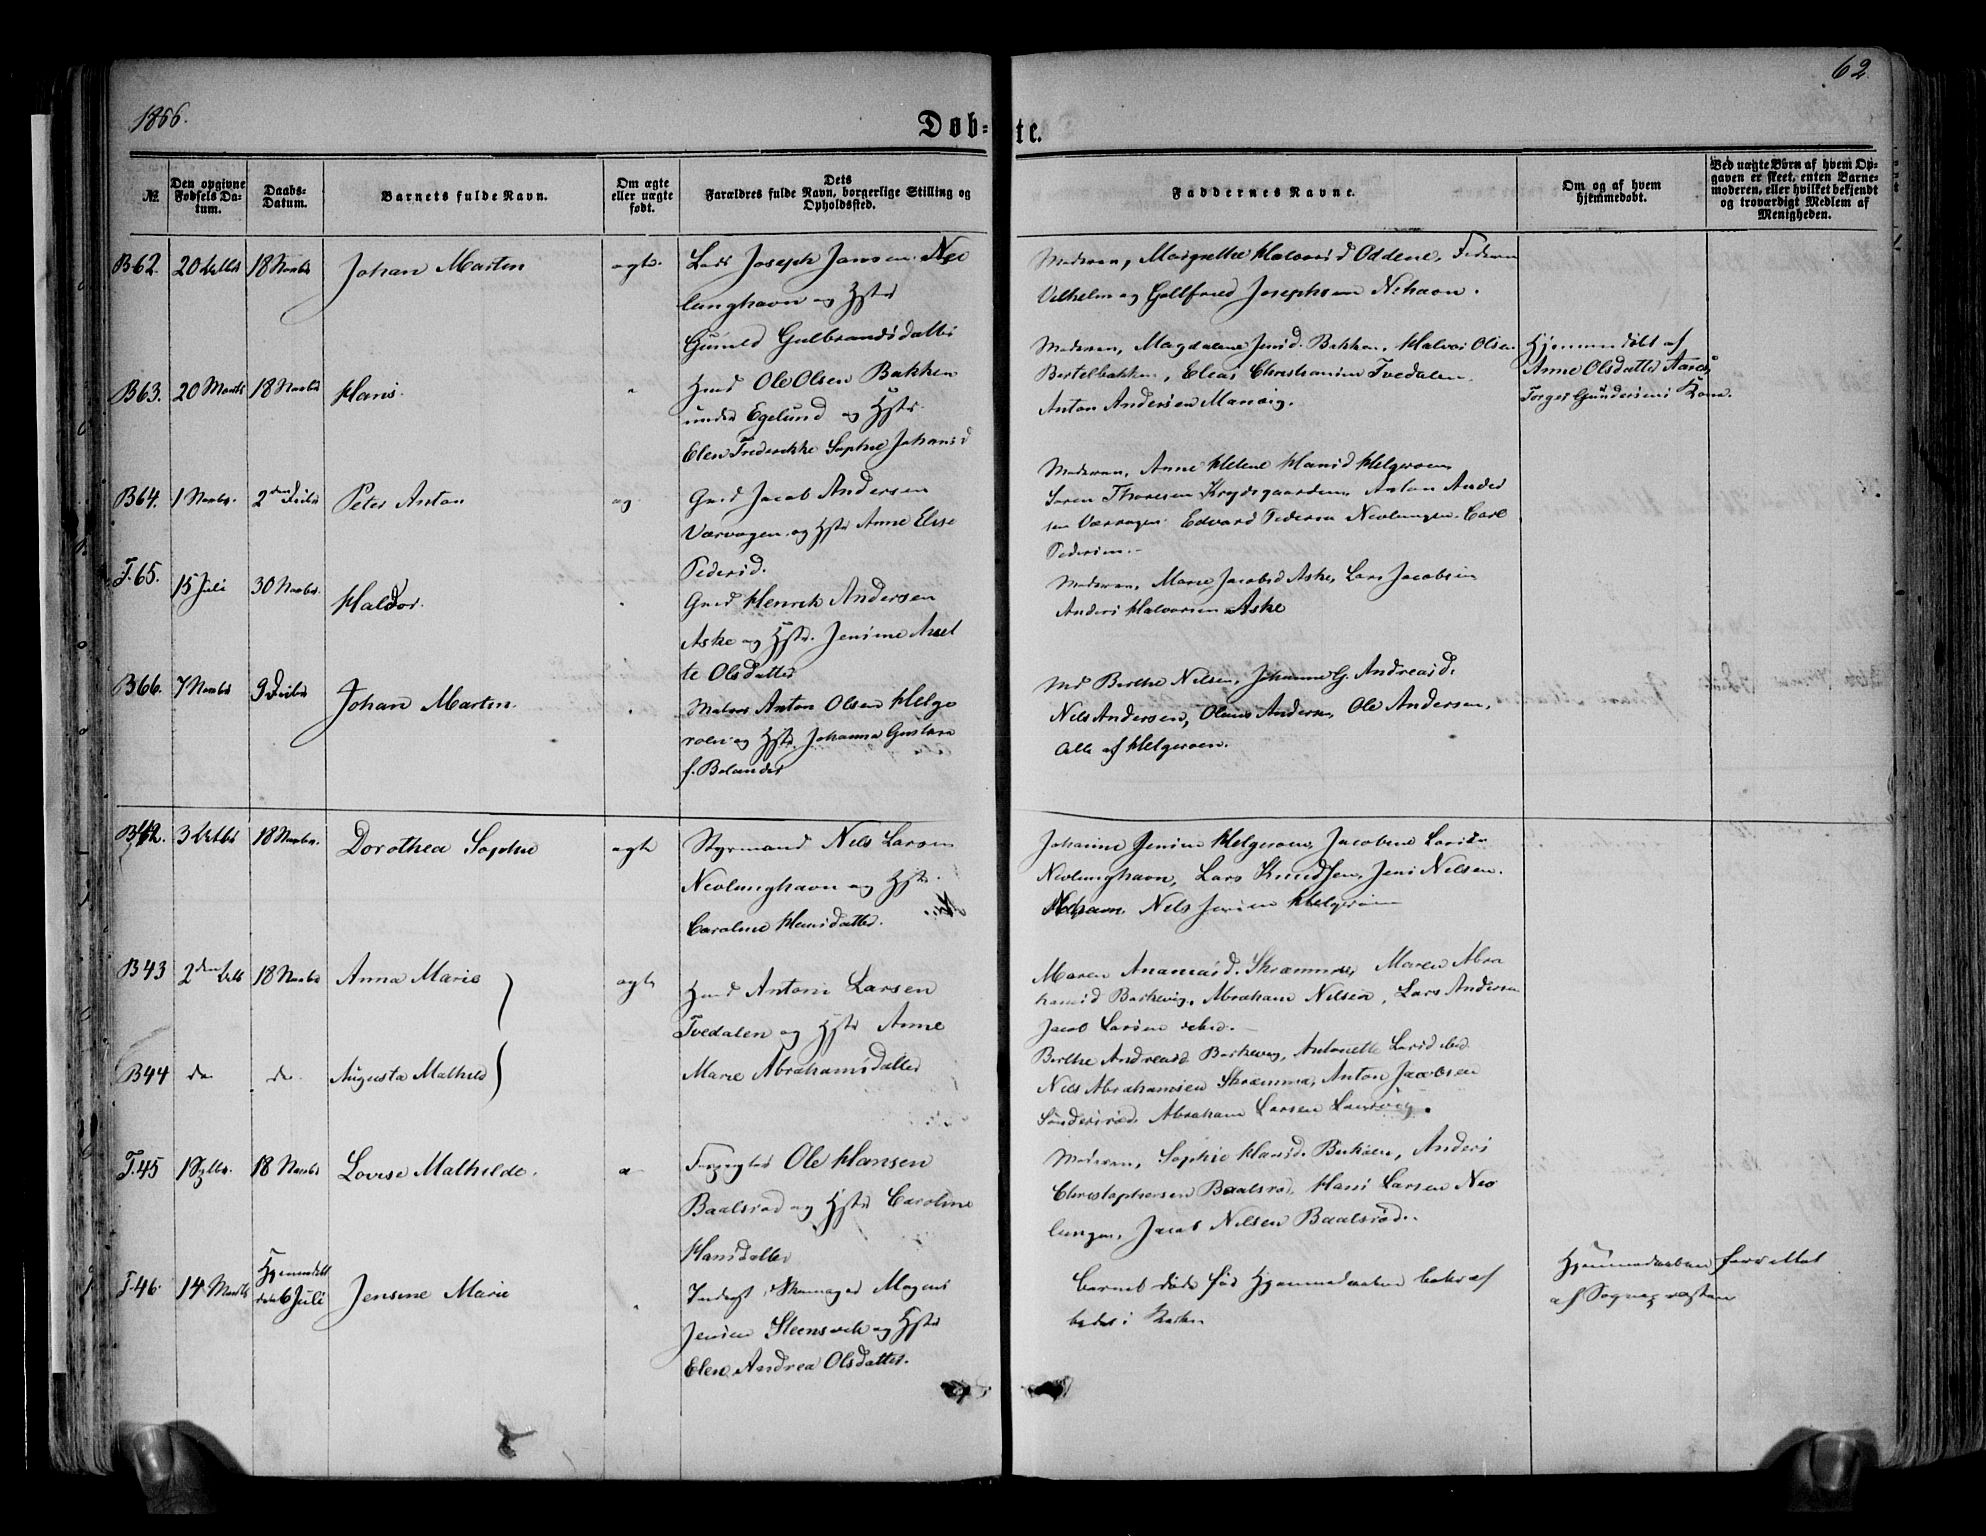 1866.
62
Døb-
te.
№
Den opgivne Fødsels Datum.
Daabs-Datum.
Barnets fulde Navn.
Om ægte eller uægte født.
Dets Forældres fulde Navn, borgerlige Stilling og Opholdssted.
Faddernes Navne.
Om og af hvem hjemmedøbt.
Ved uægte Børn af hvem Opgaven er skeet, enten Barnemoderen, eller hvilket bekjendt og troværdigt Medlem af Menigheden.
B62. 20 18 Novbr Johan Martin ægte. Lods Joseph Jansen Nev
lunghavn og Hstr
Gunild Gulbrandsdatter
Moderen, Margrethe Halvorsd Oddene, Federen
Vilhelm og Gottfred Josephsen Nehavn.
B63. 20 18 Novbr Hans. " Hmd Ole Olsen Bakken
under Egelund og Hstr.
Elen Frederikke Sophie Johansd
Moderen, Magdalene Jensd. Bakken, Halvor Olsen
Bertelbakken, Elias Christiansen Tvedalen
Anton Andersen Manvig.
Hjemmedøbt af
Anne Olsdatter
Torger Gundersens Kone.
B64. 1 Novbr. 2den Peter Anton æg Grd Jacob Andersen
Værvagen og Hstr Anne Elise
Pedersd.
Moderen, Anne Helene Hansd Helgeroen
Søren Thoresen Krydsgaarden, Anton Ander
sen Værvagen. Edvard Pedersen Nevlungen. Carl
Pedersen.
T.65. 15 Juli 30 Novbr. Haldor. " Grd Henrik Andersen
Aske og Hstr. Jensine Axel
te Olsdatter
Moderen, Marie Jacobsd Aske, Lars Jacobsen
Anders Halvorsen Aske
B66. 7 Novbr 9 Johan Martin. " Matros Anton Olsen Helge
roen og Hstr Johanna Gustava
f. Bolander
Md Berthe Nilsen, Johanne G. Andreasd.
Nils Andersen, Olaus Andersen, Ole Andersen,
Alle af Helgeroen.
B42. 3 18 Novbr. Dorothea Sophie ægte Styrmand Nils Larsen
Nevlunghavn og Hstr.
Caroline Hansdatter.
Johanne Jensine Helgeroen, Jacobine Larsd.
Nevlunghavn, Lars Knudsen, Jens Nilsen.
Nehavn. Nils Jensen Helgeroen
B43 2den 18 Novbr Anna Marie ægte Hmd Anton Larsen
Tvedalen og Hstr Anne
Marie Abrahamsdatter
Maren Ananiasd. Skræmma, Maren Abra
hamsd Barkevig, Abraham Nilsen, Lars Andersen
Jacob Larsen ibid.
B44 do do Augusta Mathild
Berthe Andreasd Barkevig, Antonette Larsd ibid
Nils Abrahamsen Skræmma, Anton Jacobsen
Søndersrød, Abraham Larsen Laurvig.
T.45 1 18 Novbr Lovise Mathilde. æ Ole Hansen
Baalsrød og Hstr Caroline
Hansdatter
Moderen, Sophie Hansd. Anders
Christophersen Baalsrød, Hans Larsen Nev
lungen, Jacob Nilsen Baalsrød.
T.46. 14 Hjemmedøbt
6 Juli Jensine Marie " Inderst, Skomager Mogens
Jensen Steensvek og Hstr
Elen Andrea Olsdatter.
Barnet døde før Hjemmedaaben bekræf
tedes i Kirken
Hjemmedaaben forrettet
af Sognepræsten